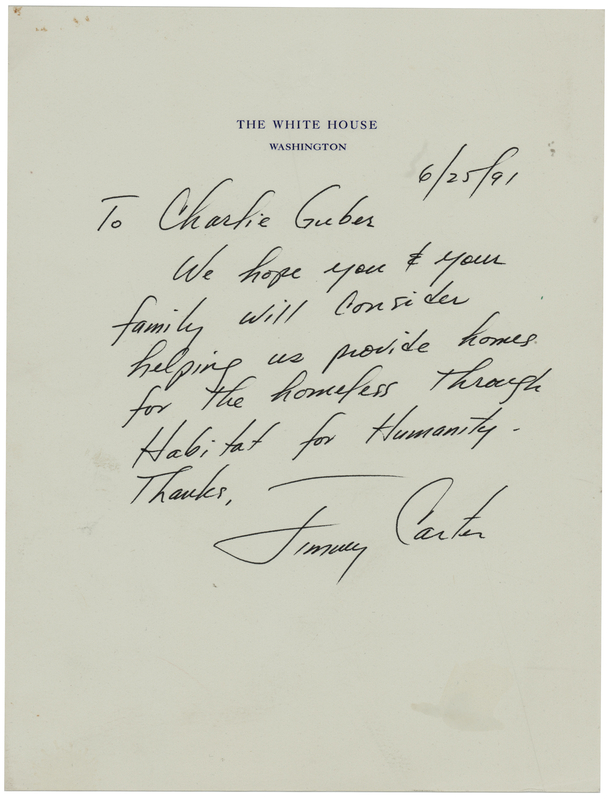 THE WHITE HOUSE
WASHINGTON
6/25/91
To Charlie Guber
We hope you & your
family will consider
helping us provide homes
for the homeless through
Habitat for Humanity.
Thanks,
Jimmy Carter